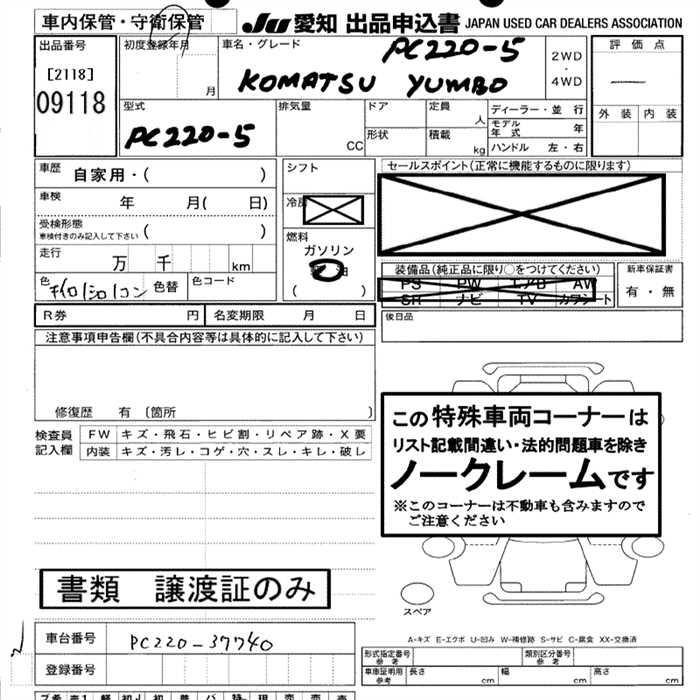 車内保管・守衛保管 Ju 愛知 出品申込書 JAPAN USED CAR DEALERS ASSOCIATION
出品番号 初度登録年月 車名・グレード PC220-5 2WD 評価点
[2118] 月 KOMATSU YUMBO ・
09118 4WD 外装 内装
型式 排気量 ドア 定員 ディーラー・並行
PC220-5 人 モデル年式 年
CC 形状 積載 kg ハンドル 左・右
車歴 自家用・( ) シフト セールスポイント(正常に機能するものに限ります)
車検 年 月( 日) 冷房
受検形態 ( )
車検付きのみ記入して下さい
燃料
走行 万 千 km ガソリン
軽油
( )
装備品(純正品に限り○をつけてください) 新車保証書
色 色替 色コード
PS PW エアB AW 有・無
SR ナビ TV カワシート
R券 円 名変期限 月 日 後日品
注意事項申告欄(不具合内容等は具体的に記入して下さい)
修復歴 有 〔箇所 〕
検査員記入欄 FW キズ・飛石・ヒビ割・リペア跡・X要
内装 キズ・汚レ・コゲ・穴・スレ・キレ・破レ
この特殊車両コーナーは
リスト記載間違い・法的問題車を除き
ノークレームです
※このコーナーは不動車も含みますので
ご注意ください
書類 譲渡証のみ
スペア
A-キズ E-エクボ U-凹み W-補修跡 S-サビ C-腐食 XX-交換済
車台番号 PC220-37740
型式指定番号 参考 類別区分番号 参考
登録番号
車庫証明用 参考 長さ cm 幅 cm 高さ cm